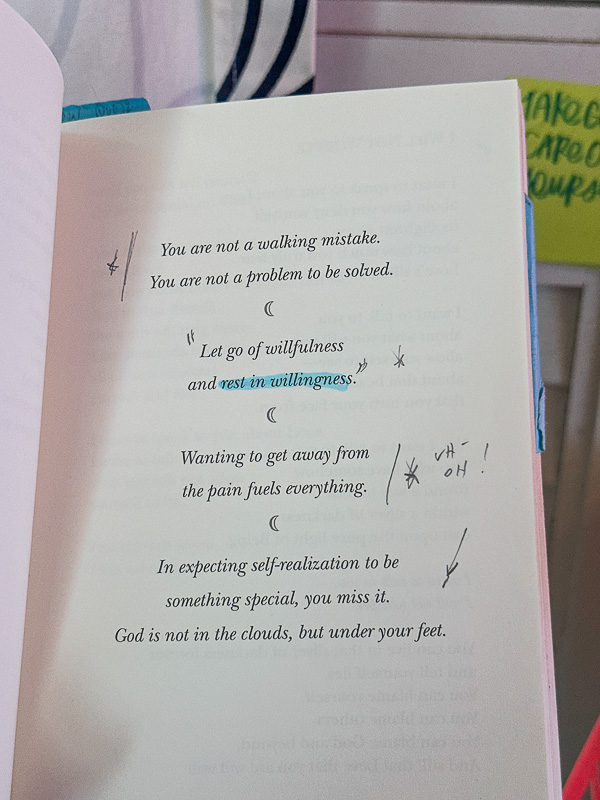 You are not a walking mistake.
You are not a problem to be solved.
"Let go of willfulness
and rest in willingness."
Wanting to get away from
the pain fuels everything.
UH-
OH!
In expecting self-realization to be
something special, you miss it.
God is not in the clouds, but under your feet.
CARE O